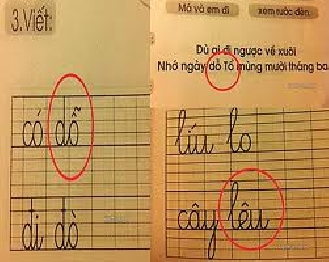 3.Viết:
có dỗ
đi đò
Mẹ và em đi
xem rước đèn.
Dù ai đi ngược về xuôi
Nhớ ngày dỗ Tổ mùng mười tháng ba.
líu lo
cây lêu